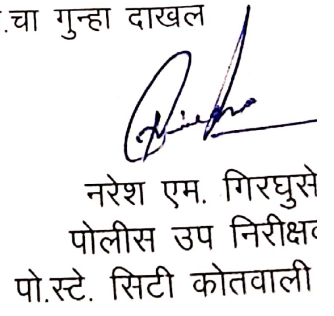 .चा गुन्हा दाखल
नरेश एम. गिरघुसे
पोलीस उप निरीक्षक
पो.स्टे. सिटी कोतवाली